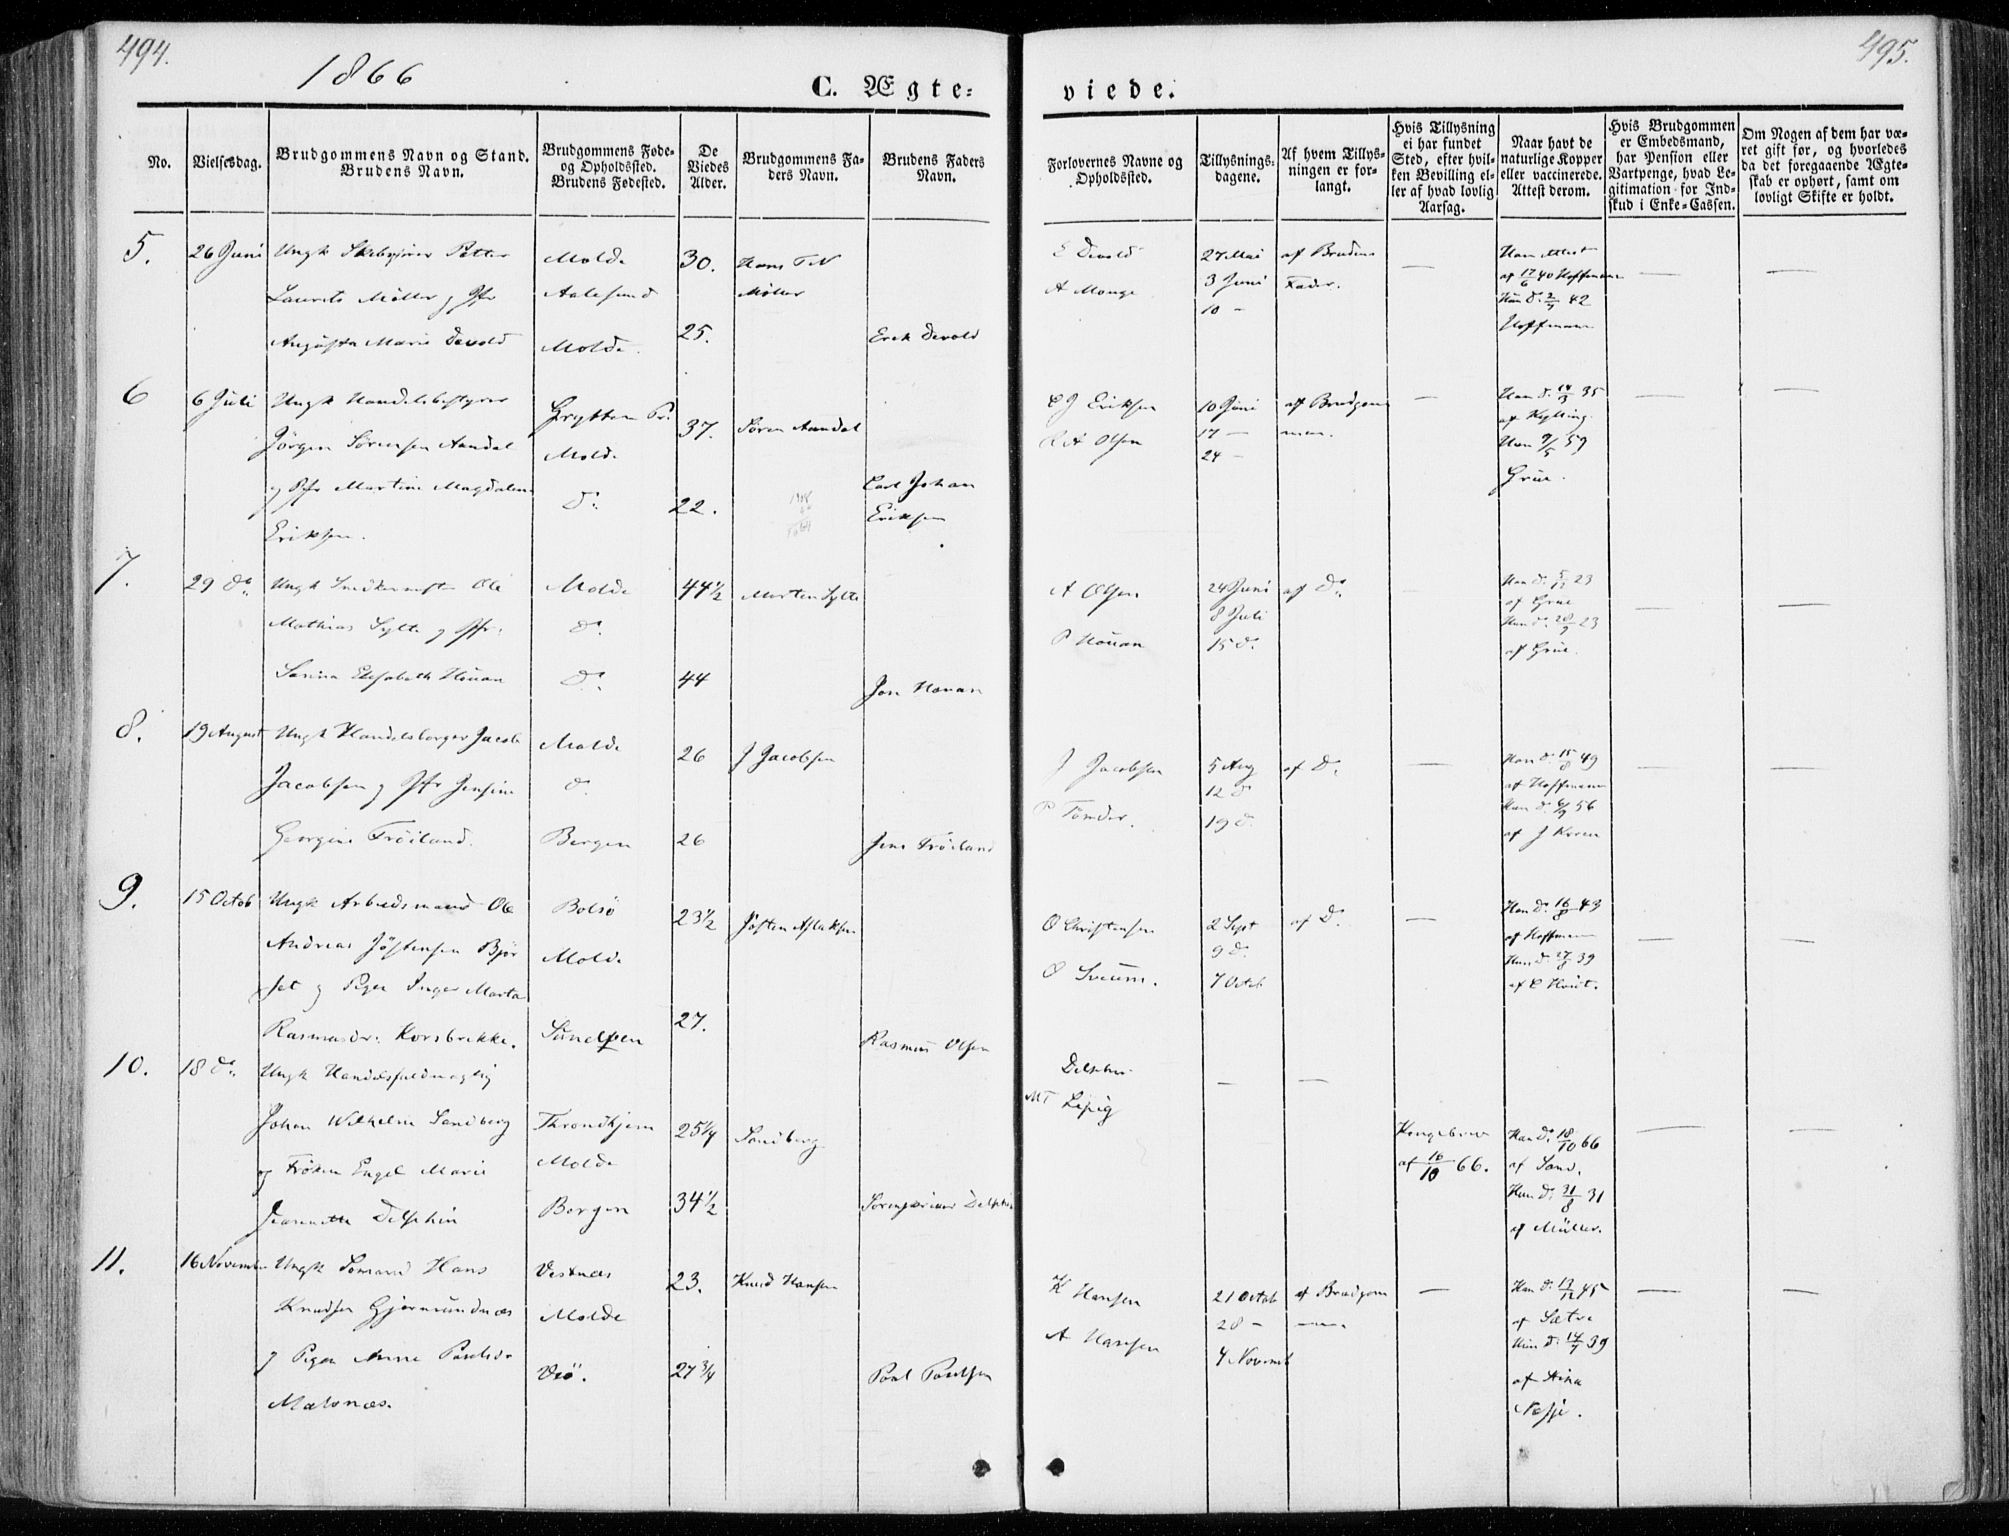 494.
1866
C. Ægte=
viede.
495.
No.
Vielsesdag.
Brudgommens Navn og Stand.
Brudens Navn.
Brudgommens Føde=
og Opholdssted.
Brudens Fødested.
De
Viedes
Alder.
Brudgommens Fa=
ders Navn.
Brudens Faders
Navn.
Forlovernes Navne og
Opholdssted.
Tillysnings=
dagene.
Af hvem Tillys=
ningen er for=
langt.
Hvis Tillysning
ei har fundet
Sted, efter hvil=
ken Bevilling el=
ler af hvad lovlig
Aarsag.
Naar havt de
naturlige Kopper
eller vaccinerede.
Attest derom.
Hvis Brudgommen
er Embedsmand,
har Pension eller
Vartpenge, hvad Le=
gitimation for Ind=
skud i Enke=Cassen.
Om Nogen af dem har væ=
ret gift før, og hvorledes
da det foregaaende Ægte=
skab er ophørt, samt om
lovligt Skifte er holdt.
5.
26 Juni
Ungk Petter
Laurits Möller og Jfr
Augusta Marie Devold
Molde
Aalesund
Molde.
30.
25.
Hans
Møller
Erik Devold
E Devold
A Monge
27 Mai
3 Juni
10 -
af Brudens
Fader.
—
Han Attest
af 17/6 40 Hoffmann
Hun d: 2/7 42
Hoffmann
—
—
6
6 Juli
Ungk Handelsbestyrer
Jörgen Sörensen Aandal
og Jfr Martine Magdalene
Eriksen.
Grytten Pr:
Molde
D:
37.
22.
Sören Aandal
Carl Johan
Eriksen
C J Eriksen
A Olsen
10 Juni
17 —
24 —
af Brudgom
men.
—
Han d: 14/3 35
af Kylling.
Hun 9/5 59
Grüe.
—
—
7.
29 do.
Ungk Ole
Mathias Sylte og Jfr:
Elisabeth Houan
Molde
D:
D:
44½
44
Morten Sylte
Jon Houan
A Olsen
P Houan
24 Juni
8 Juli
15 d:
af D:
Han d: 5/12 23
af Grüe
Hun d: 28/9 23
af Grüe.
—
—
8.
19 August
Ungk Handelsborger Jacob
Jacobsen og Jfr Jensine
Georgine Fröiland.
Molde
d:
Bergen
26
26
J Jacobsen
Jens Fröiland
J Jacobsen
P Tönder.
5 Aug
12 d
19 d.
af D:
—
Han d: 15/8 49
af Hoffmann
Hun d: 56
af J Koren
—
—
9.
15 Octob
Ungk Arbeidsmand Ole
Andreas Jöstensen Bjør
set og Pigen Inger Marta
Rasmusdr: Korsbrekke.
Bolsö
Molde
Sunelven
23½
27.
Jösten Aslaksen
Rasmus Olsen
O Christensen
O Sveum.
2 Sept
9 d:
7 Octob
af D:
—
Han d: 16/8 43
af Hoffmann
Hun d: 27/8 39
af
—
—
10.
18 d:
Ungk
Johan Wilhelm Sandberg
og Fröken Engel Marie
Jeannette Delphin
Throndhjem
Molde
Bergen
25¼
34½
Sandberg
Sorenskriver Delphin
Delphin
MT
—
—
Kongebrev
af 16/10 66.
Han d: 18/10 66
af Sand.
Hun d: 31/8 31
af Müller.
—
—
11.
16 November
Ungk Sömand Hans
Knudsen Gjermundnæs
og Pigen Anne
Malsnæs.
Vestnæs
Molde
Veö.
23.
27¾
Knud Hansen
Poul Poulsen
K Hansen
A Hansen
21 Octob
28 —
4 Novemb
af Brudgom
—
Han d: 13/12 45
af Sætre
Hun d: 14/7 39
af
Nesje.
—
—